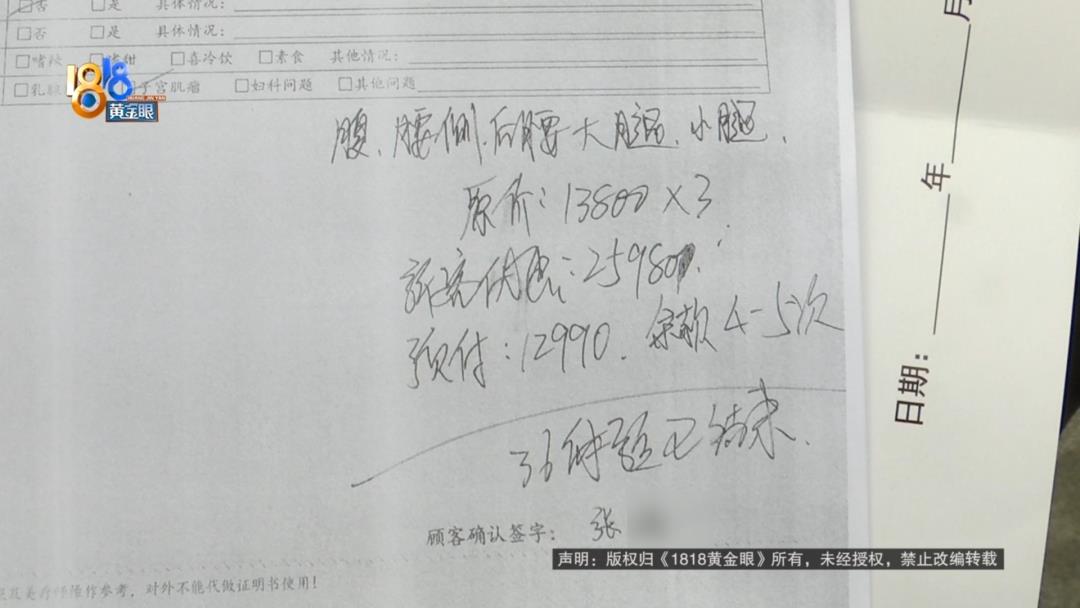 否 □是 具体情况：
□否 □是 具体情况：
□嗜辣 □嗜甜 □喜冷饮 □素食 其他情况：
□乳腺 子宫肌瘤 □妇科问题 □其他问题
1818
黄金眼
腹、腰侧、后腰、大腿、小腿、
原价：13800×3
新客优惠：25980
预付：12990. 余款4-5次
已结束.
顾客确认签字： 张
美疗师操作参考，对外不能代做证明书使用！
日期：____年____月
声明：版权归《1818黄金眼》所有，未经授权，禁止改编转载